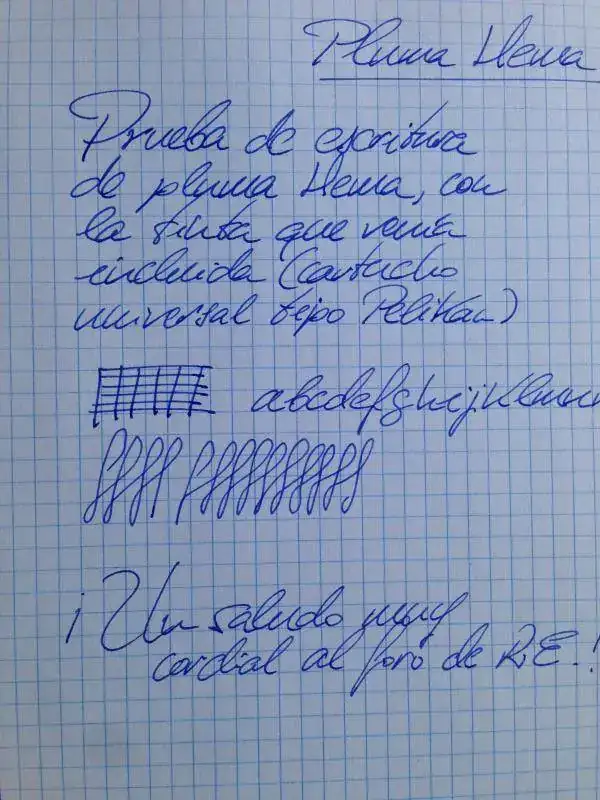 Pluma Hema
Prueba de escritura
de pluma Hema, con
la tinta que venía
incluida (cartucho
universal tipo Pelikan)
abcdefghijklmn
¡Un saludo muy
cordial al foro de R.E.!